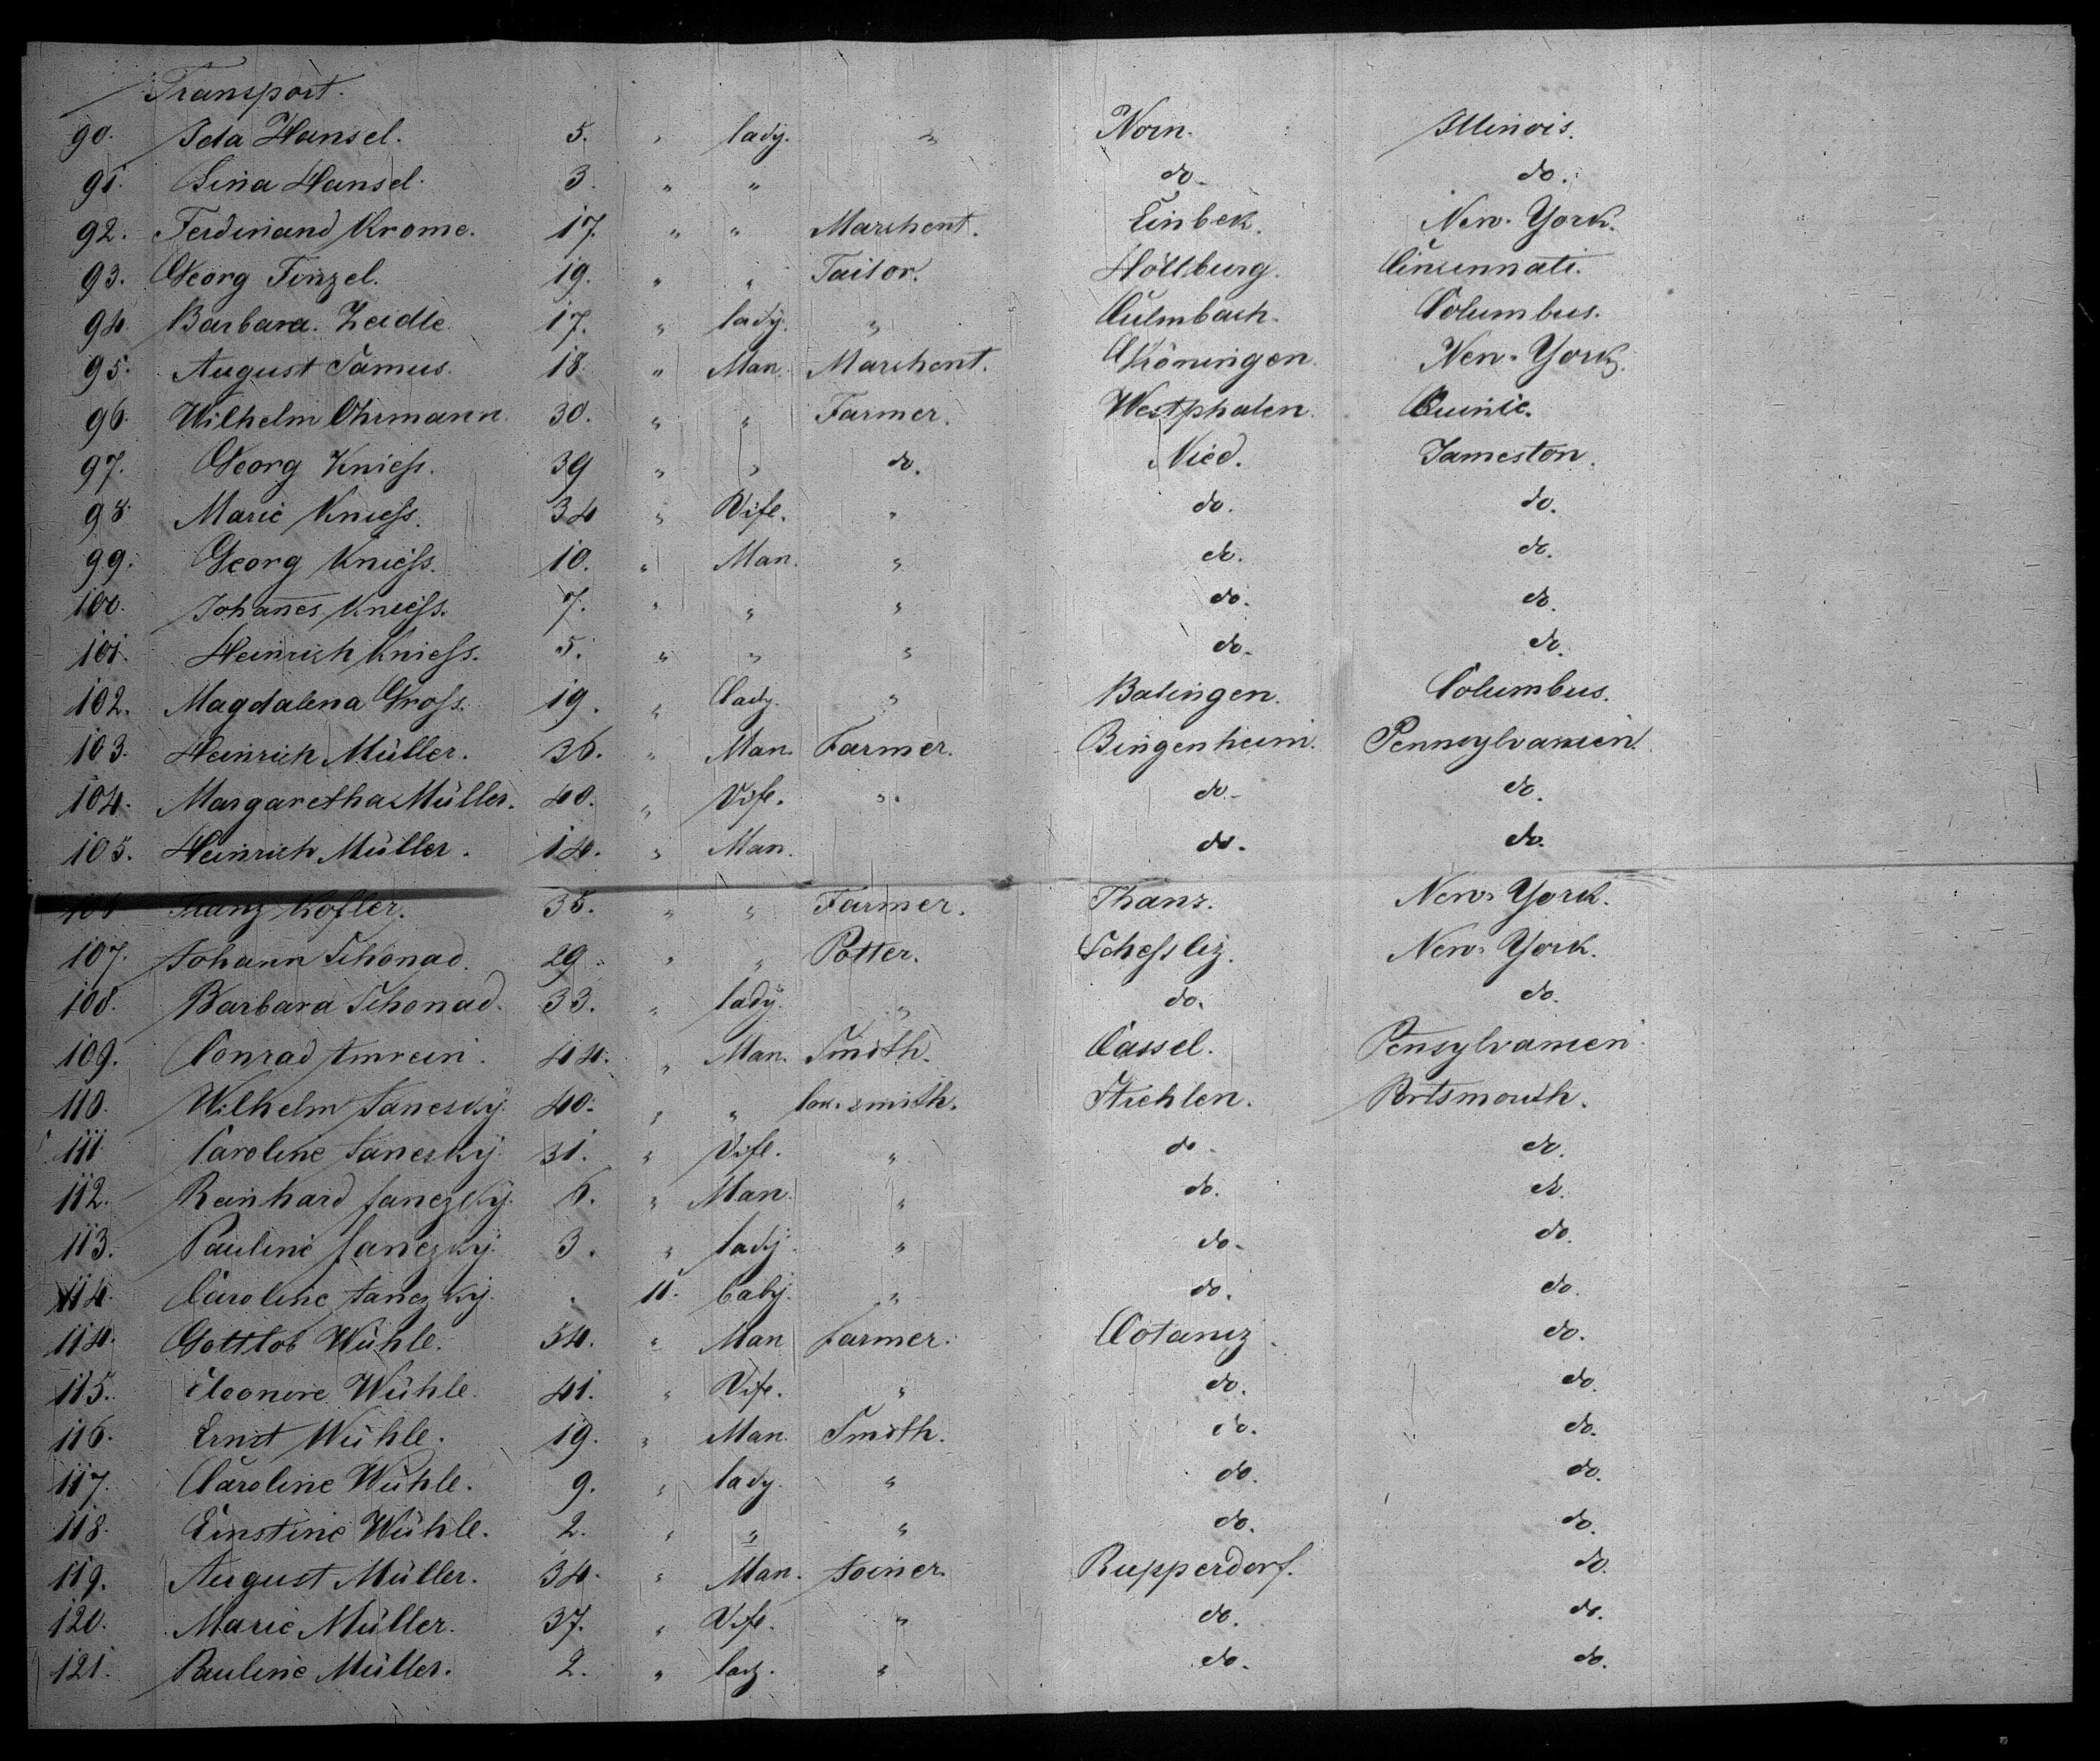 Transport.
90. Ida Hansel. 5. " lady. " Norn. Illinois.
91. Lina Hansel. 3. " " do. do.
92. Ferdinand Krome. 17. " " Marchent. Einbek. New-York.
93. Georg Finzel. 19. " " Tailor. Höllburg. Cincinnati.
94. Barbara Zeidle. 17. " lady. " Culmbach. Columbus.
95. August Samus. 18. " Man. Marchent. New-York.
96. Wilhelm Ohrmann. 30. " " Farmer. Westphalen. Quinic.
97. Georg Knieſs. 39 " " do. Nied. Jameston.
98. Marie Knieſs. 34 " Vife. " do. do.
99. Georg Knieſs. 10. " Man. " do. do.
100. Johan̄es Knieſs. 7. " " " do. do.
101. Heinrich Knieſs. 5. " " " do. do.
102. Magdalena Groſs. 19. " Lady. " Balingen. Columbus.
103. Heinrich Müller. 36. " Man. Farmer. Bingenheim. Pennsylvanien.
104. Margaretha Müller. 40. " Vife. " do. do.
105. Heinrich Müller. 14. " Man. do. do.
106 Franz Kofler. 35. " " Farmer. Thanz. New-York.
107. Johann Schonad. 29. " " Potter. Scheſsliz. New-York.
108. Barbara Schonad. 33. " lady. " do. do.
109. Conrad Amrein. 44. " Man. Smith. Cassel. Pensylvanien.
110. Wilhelm Janesky. 40. " " lok-smith. Strehlen. Portsmouth.
111. Caroline Janezky. 31. " Vife. " do. do.
112. Reinhard Janezky. 6. " Man. " do. do.
113. Pauline Janezky. 3. " lady. " do. do.
114. Caroline Janezky. . 11. baby. " do. do.
114. Gottlob Wühle. 54. " Man farmer. Cotaniz. do.
115. Eleonore Wühle. 41. " Vife. " do. do.
116. Ernst Wühle. 19. " Man. Smith. do. do.
117. Caroline Wühle. 9. " lady. " do. do.
118. Ernstine Wühle. 2. " " " do. do.
119. August Müller. 34. " Man. Joiner. Rupperdorf. do.
120. Marie Müller. 37. " Vife. " do. do.
121. Pauline Müller. 2. " lady. " do. do.